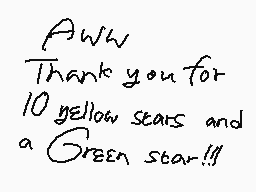 Aww
Thank you for
10 yellow stars and
a Green star!!!